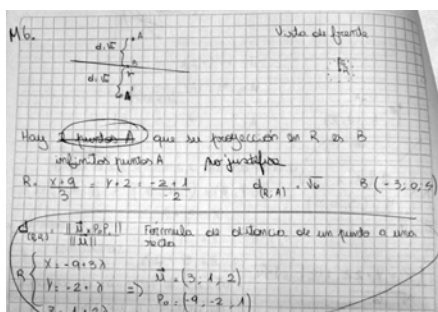 M6.
Vista de frente
d=√6 A
B r
d=√6
A'
Hay 2 puntos A que su proyección en R es B
infinitos puntos A no justifica
R= x+9/3 = y+2 = -z+1/-2 d(R,A) = √6 B(-3;0;5)
d(R,A) = ||u x P₀P₁|| / ||u|| Fórmula de distancia de un punto a una
recta
R { x=-9+3λ
y=-2+λ => u=(3,1,2)
z=1+2λ P₀=(-9,-2,1)